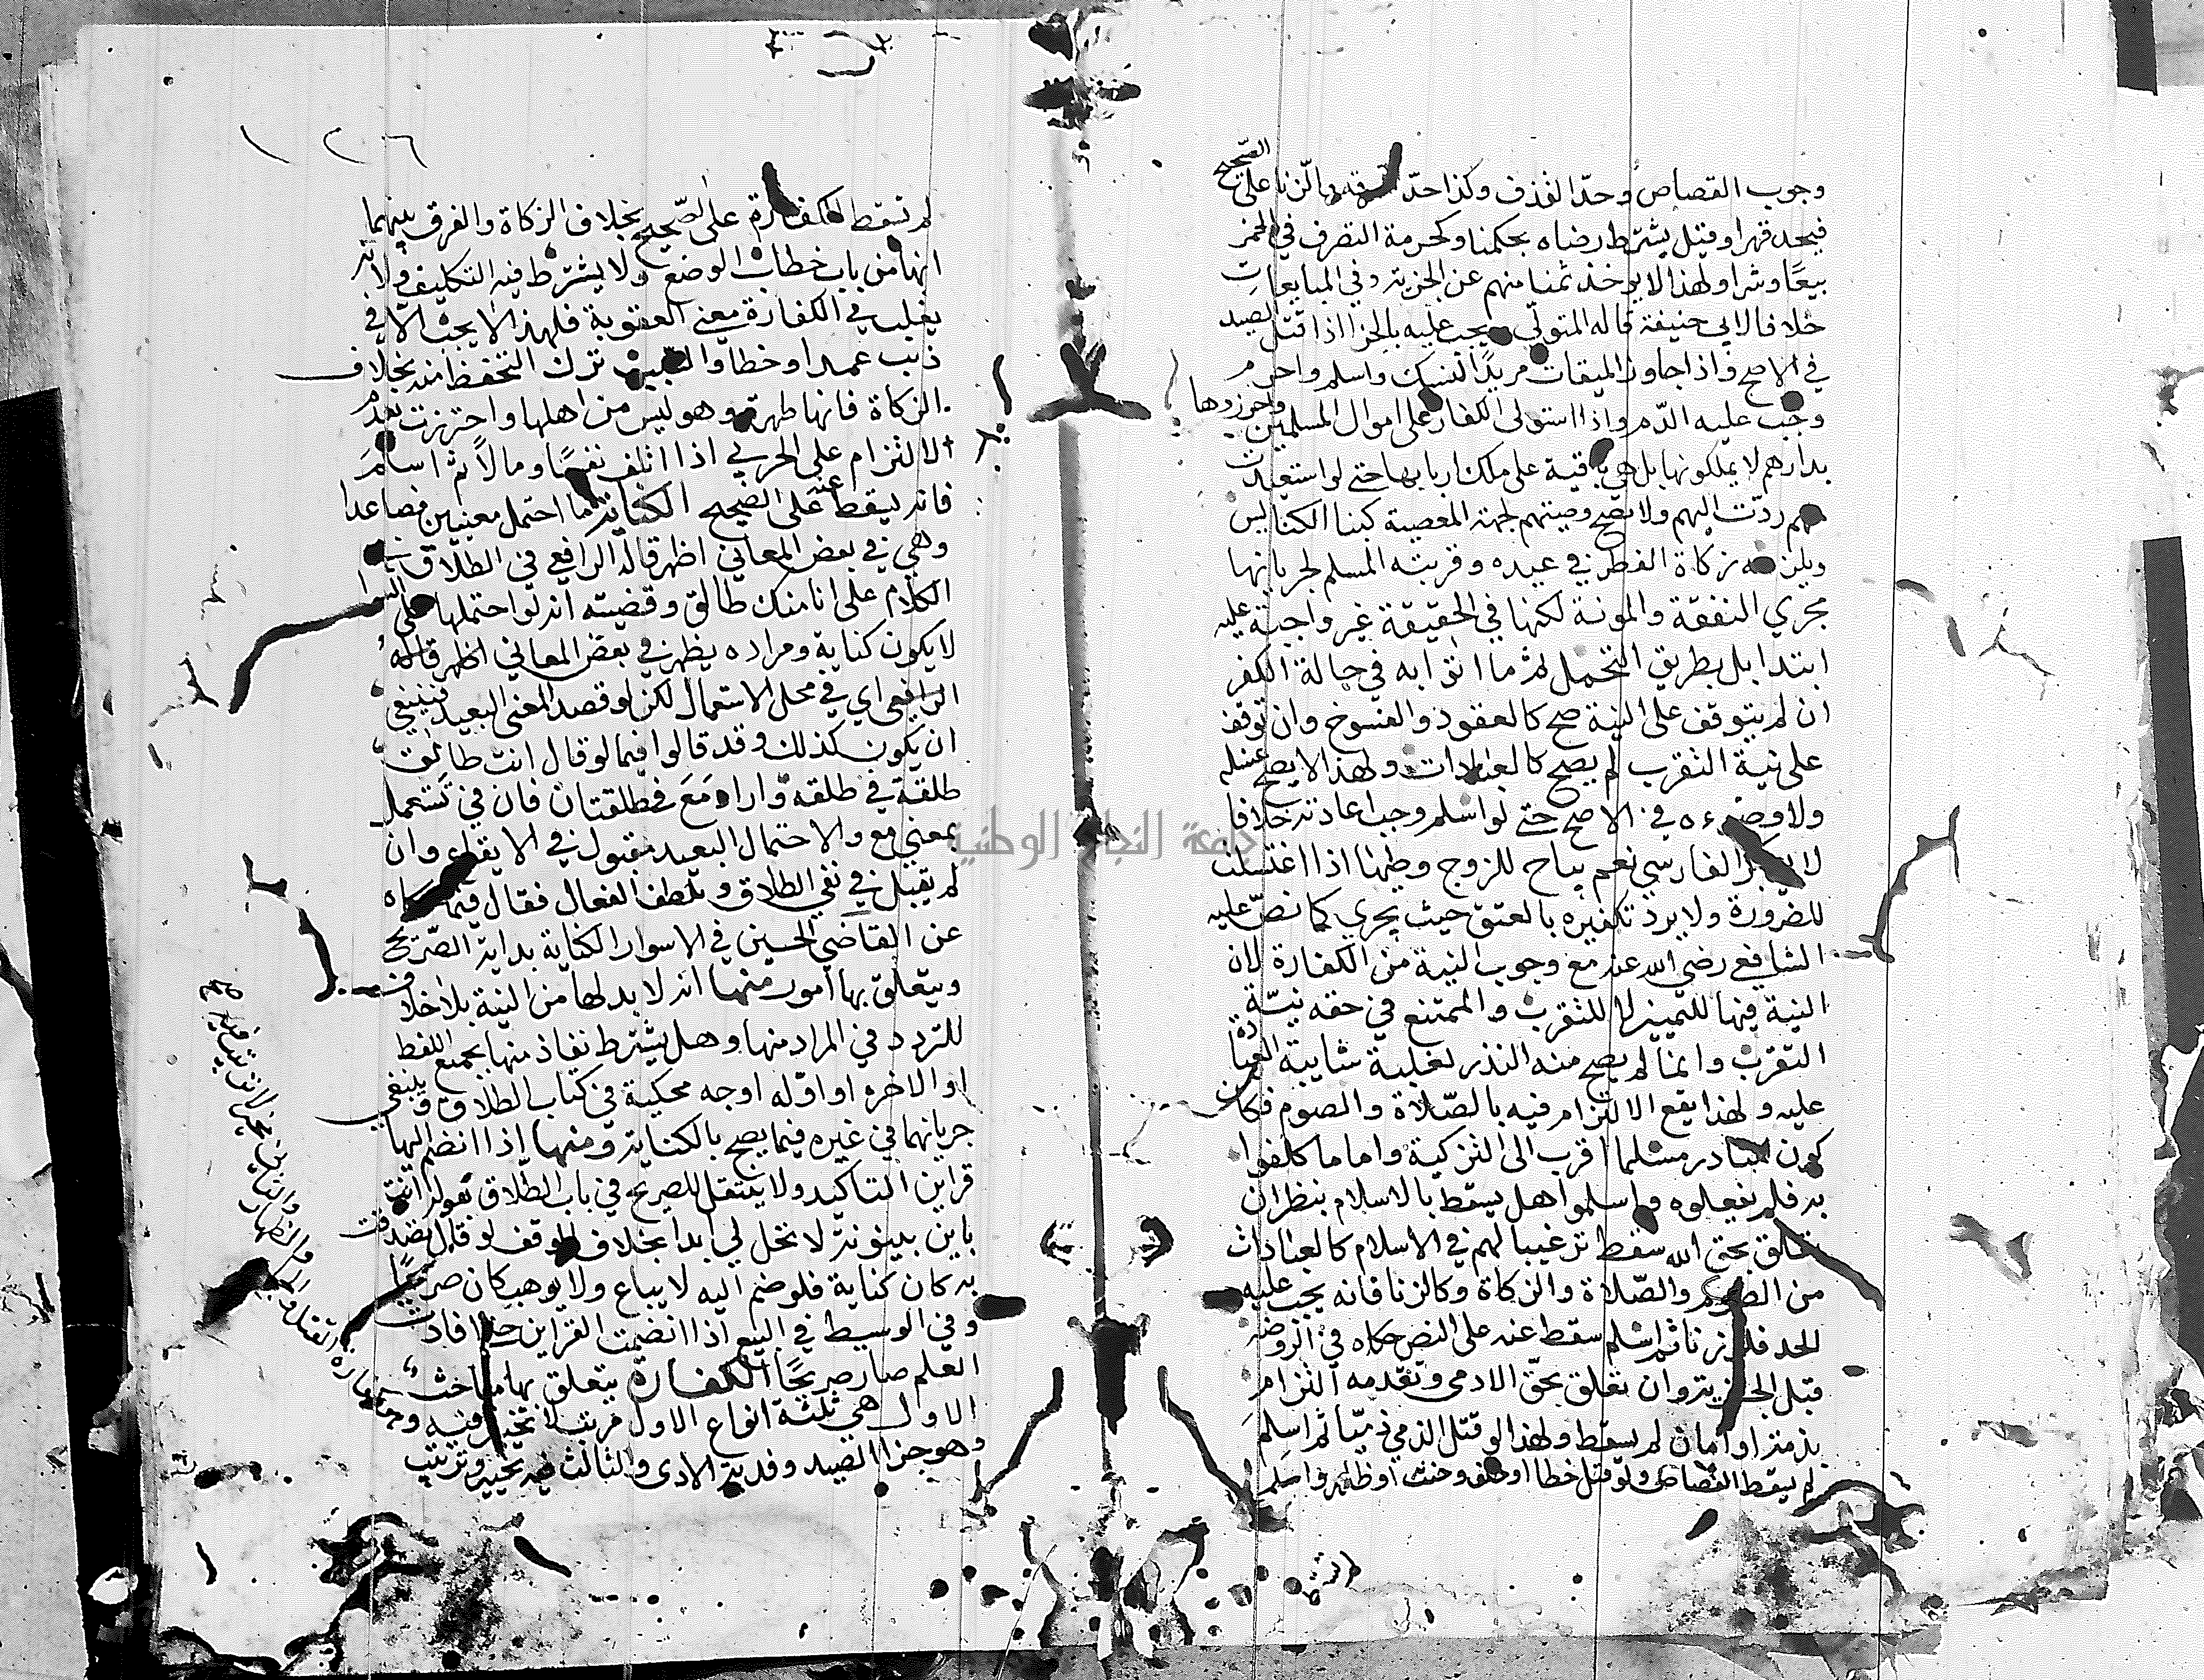 وجوب القصاص وحد القذف وكذا حد السرقة والزنا على الصحيح
فيحد قهرا وقيل يشترط رضاه بحكمنا وكحرمة التصرف في الخمر
بيعا وشرا ولهذا لا يوخذ ثمنا منهم عن الجزية وفي المبايعات
خلافا لابي حنيفة قاله المتولي ويجب عليه بالجزا اذا قتل الصيد
في الاصح واذا جاوز الميقات مريدا النسك واسلم واحرم
وجب عليه الدم واذا استولى الكفار على اموال المسلمين واحرزوها
بدارهم لا يملكونها بل هي باقية على ملك اربابها حتى لو استعيدت
منهم ردت اليهم ولا تصح وصيتهم لجهة المعصية كبنا الكنايس
ويلزمه زكاة الفطر في عبده وقريبه المسلم لجريانها
مجري النفقة والمونة لكنها في الحقيقة غير واجبة عليه
ابتدا بل بطريق التحمل ثم ما اتى به في حالة الكفر
ان لم يتوقف على النية صح كالعقود والفسوخ وان توقف
على نية التقرب لم يصح كالعبادات ولهذا لا يصح غسله
ولا وضوءه في الاصح حتى لو اسلم وجب اعادته خلافا
لابي بكر الفارسي نعم يباح للزوج وطئها اذا اغتسلت
للضرورة ولا يرد تكفيره بالعتق حيث يجزي كما نص عليه
الشافعي رضي الله عنه مع وجوب النية من الكفارة لان
النية فيها للتمييز لا للتقرب والممتنع في حقه نية
التقرب وانما لم يصح منه النذر لغلبة شايبة العبادة
عليه ولهذا يقع الالتزام فيه بالصلاة والصوم فكان
كون الناذر مسلما اقرب الى التزكية واما ما كلفوا
به فلم يفعلوه واسلموا هل يسقط بالاسلام ينظر ان
تعلق بحق الله سقط ترغيبا لهم في الاسلام كالعبادات
من الصوم والصلاة والزكاة وكالزنا فانه يجب عليه
الحد فلو زنا ثم اسلم سقط عنه على النص حكاه في الروضة
قبل الجزية وان تعلق بحق الادمي وتقدمه التزام
بذمة او امان لم يسقط ولهذا لو قتل الذمي ذميا ثم اسلم
لم يسقط القصاص ولو قتل خطا او حلف وحنث او ظاهر واسلم
١٢٦
لم تسقط الكفارة على الصحيح بخلاف الزكاة والفرق بينهما
انها من باب خطاب الوضع ولا يشترط فيه التكليف ولانه
يغلب في الكفارة معنى العقوبة فلهذا لا يجب الا في
ذنب عمدا وخطا والسبب ترك التحفظ منه بخلاف
الزكاة فانها طهرة وهو ليس من اهلها واحترزت بعدم
الالتزام على الحربي اذا اتلف نفسا ومالا ثم اسلم
فانه يسقط عنه على الصحيح الكناية ما احتمل معنيين فصاعدا
وهي في بعض المعاني اظهر قاله الرافعي في الطلاق
الكلام على انا منك طالق وقضيته انه لو احتملها على السوا
لا يكون كناية ومراده يظهر في بعض المعاني اظهر قاله
الرافعي اي في محل الاستعمال لكن لو قصد المعنى البعيد فينبغي
ان يكون كذلك وقد قالوا فيما لو قال انت طالق
طلقة في طلقة واراد مع فطلقتان فان في تستعمل
بمعنى مع والاحتمال البعيد مقبول في الايقاع وان
لم يقبل في نفي الطلاق وتلطف القفال فقال فيما حكاه
عن القاضي الحسين في الاسرار الكناية بداية الصريح
ويتعلق بها امور منها انه لا بد لها من النية بلا خلاف
للتردد في المراد منها وهل يشترط نفاذ منها بجميع اللفظ
او الاخره او اوله اوجه محكية في كتاب الطلاق وينبغي
جريانهما في غيره فيما يصح بالكناية ومنها اذا انضم اليها
قراين التاكيد ولا ينتقل للصريح في باب الطلاق كقوله انت
باين بينونة لا تحل لي ابدا بخلاف الوقف لو قال تصدقت
به كان كناية فلو ضم اليه لا يباع ولا يوهب كان صريحا
وفي الوسيط في البيع اذا انضمت القراين حتى افادت
العلم صار صريحا الكفارة يتعلق بها مباحث
الاول هي ثلثة انواع الاول مرتب لا تخيير فيه وهو كفارة القتل والجماع والظهار والثاني مخير لا ترتيب فيه
وهو جزا الصيد وفدية الاذى والثالث فيه تخيير وترتيب
جامعة النجاح الوطنية